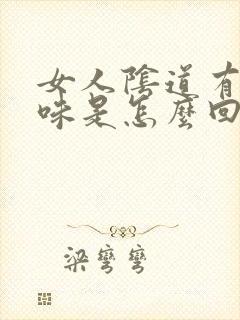 女人陰道有
味是怎麼回
梁彎彎